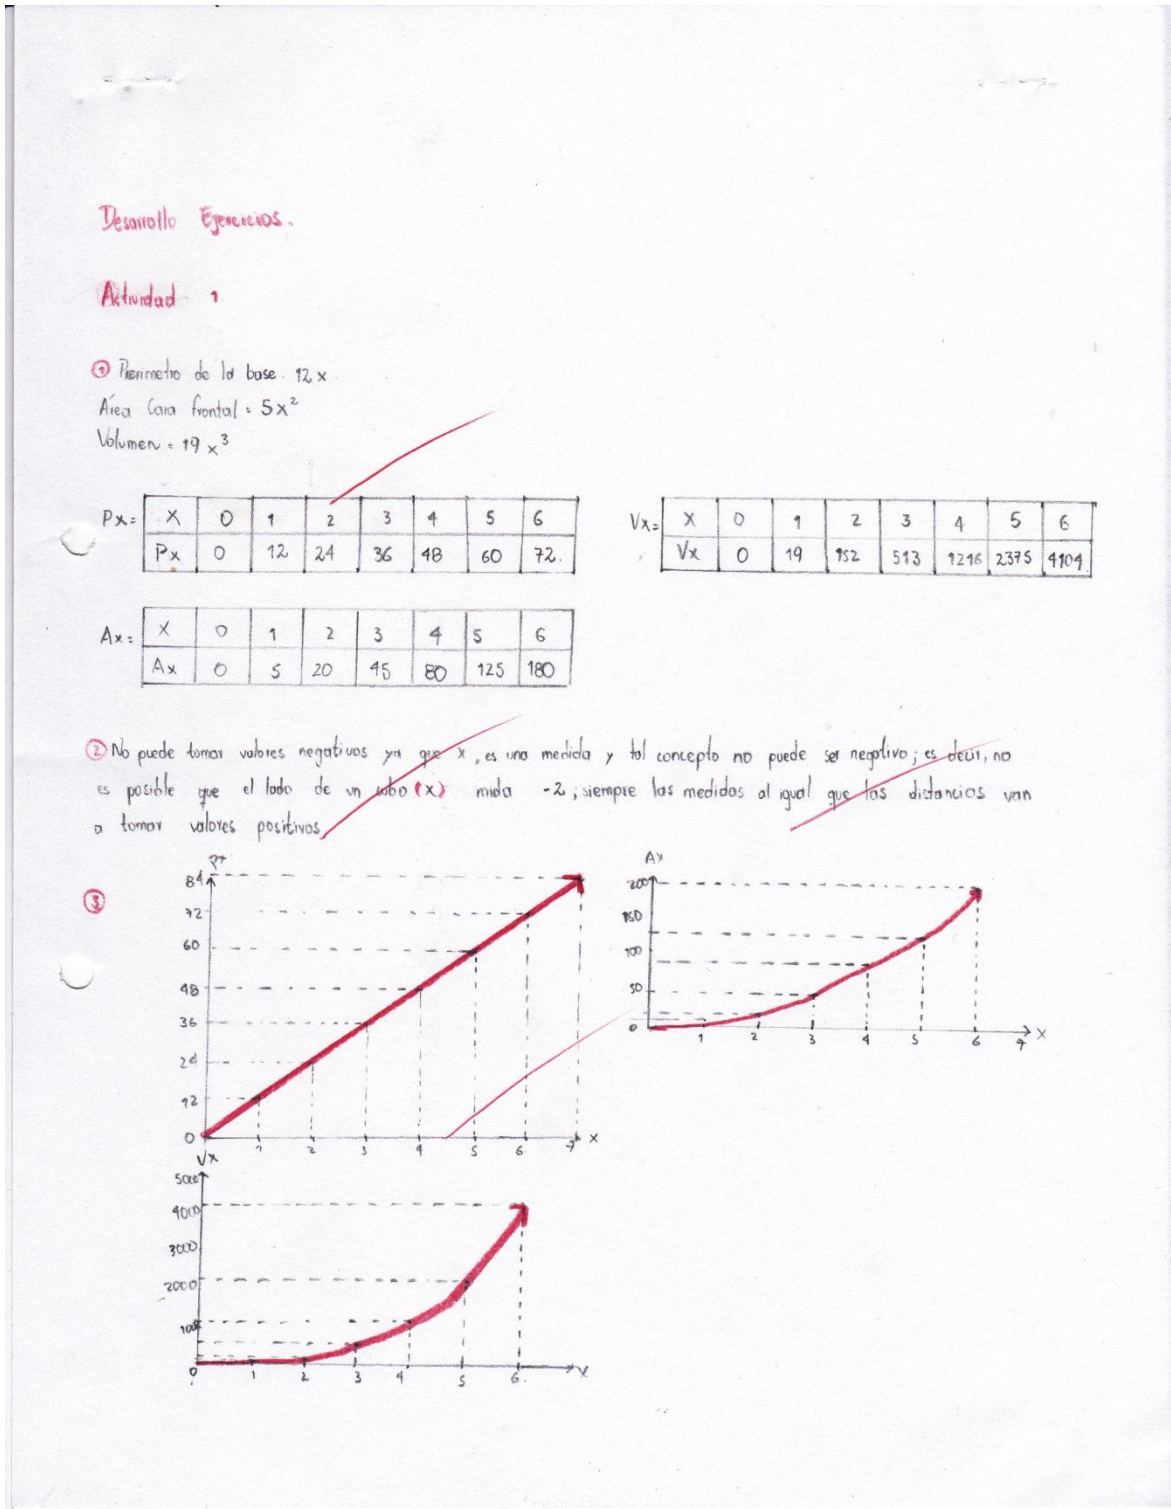 Desarrollo Ejercicios.
Actividad 1
① Perimetro de la base. 12x
Área Cara frontal = 5x²
Volumen = 19x³
Px= X 0 1 2 3 4 5 6
Px 0 12 24 36 48 60 72.
Vx= X 0 1 2 3 4 5 6
Vx 0 19 152 513 1216 2375 4104
Ax= X 0 1 2 3 4 5 6
Ax 0 5 20 45 80 125 180
② No puede tomar valores negativos ya que x, es una medida y tal concepto no puede ser negativo; es decir, no
es posible que el lado de un cubo (x) mida -2; siempre las medidas al igual que las distancias van
a tomar valores positivos
③
84
72
60
48
36
24
12
0
1 2 3 4 5 6 7 x
Ax
200
150
100
50
0
1 2 3 4 5 6 7 x
Vx
5000
4000
3000
2000
0
1 2 3 4 5 6